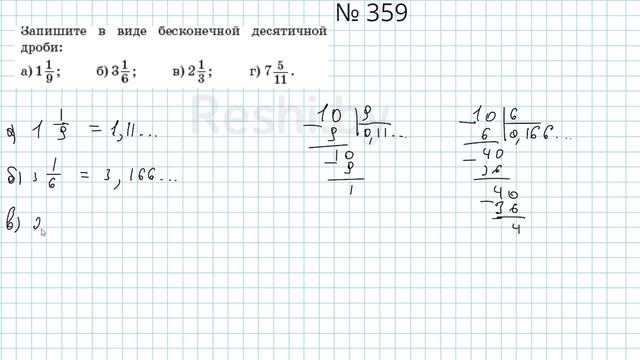 № 359
Запишите в виде бесконечной десятичной
дроби:
а) 1 1/9; б) 3 1/6; в) 2 1/3; г) 7 5/11.
Reshi.by
а) 1 1/9 = 1,11...
б) 3 1/6 = 3,166...
в) 2
10 | 9
− 9 | 0,11...
− 10
9
1
− 10 | 6
6 | 0,166...
− 40
36
− 40
36
4